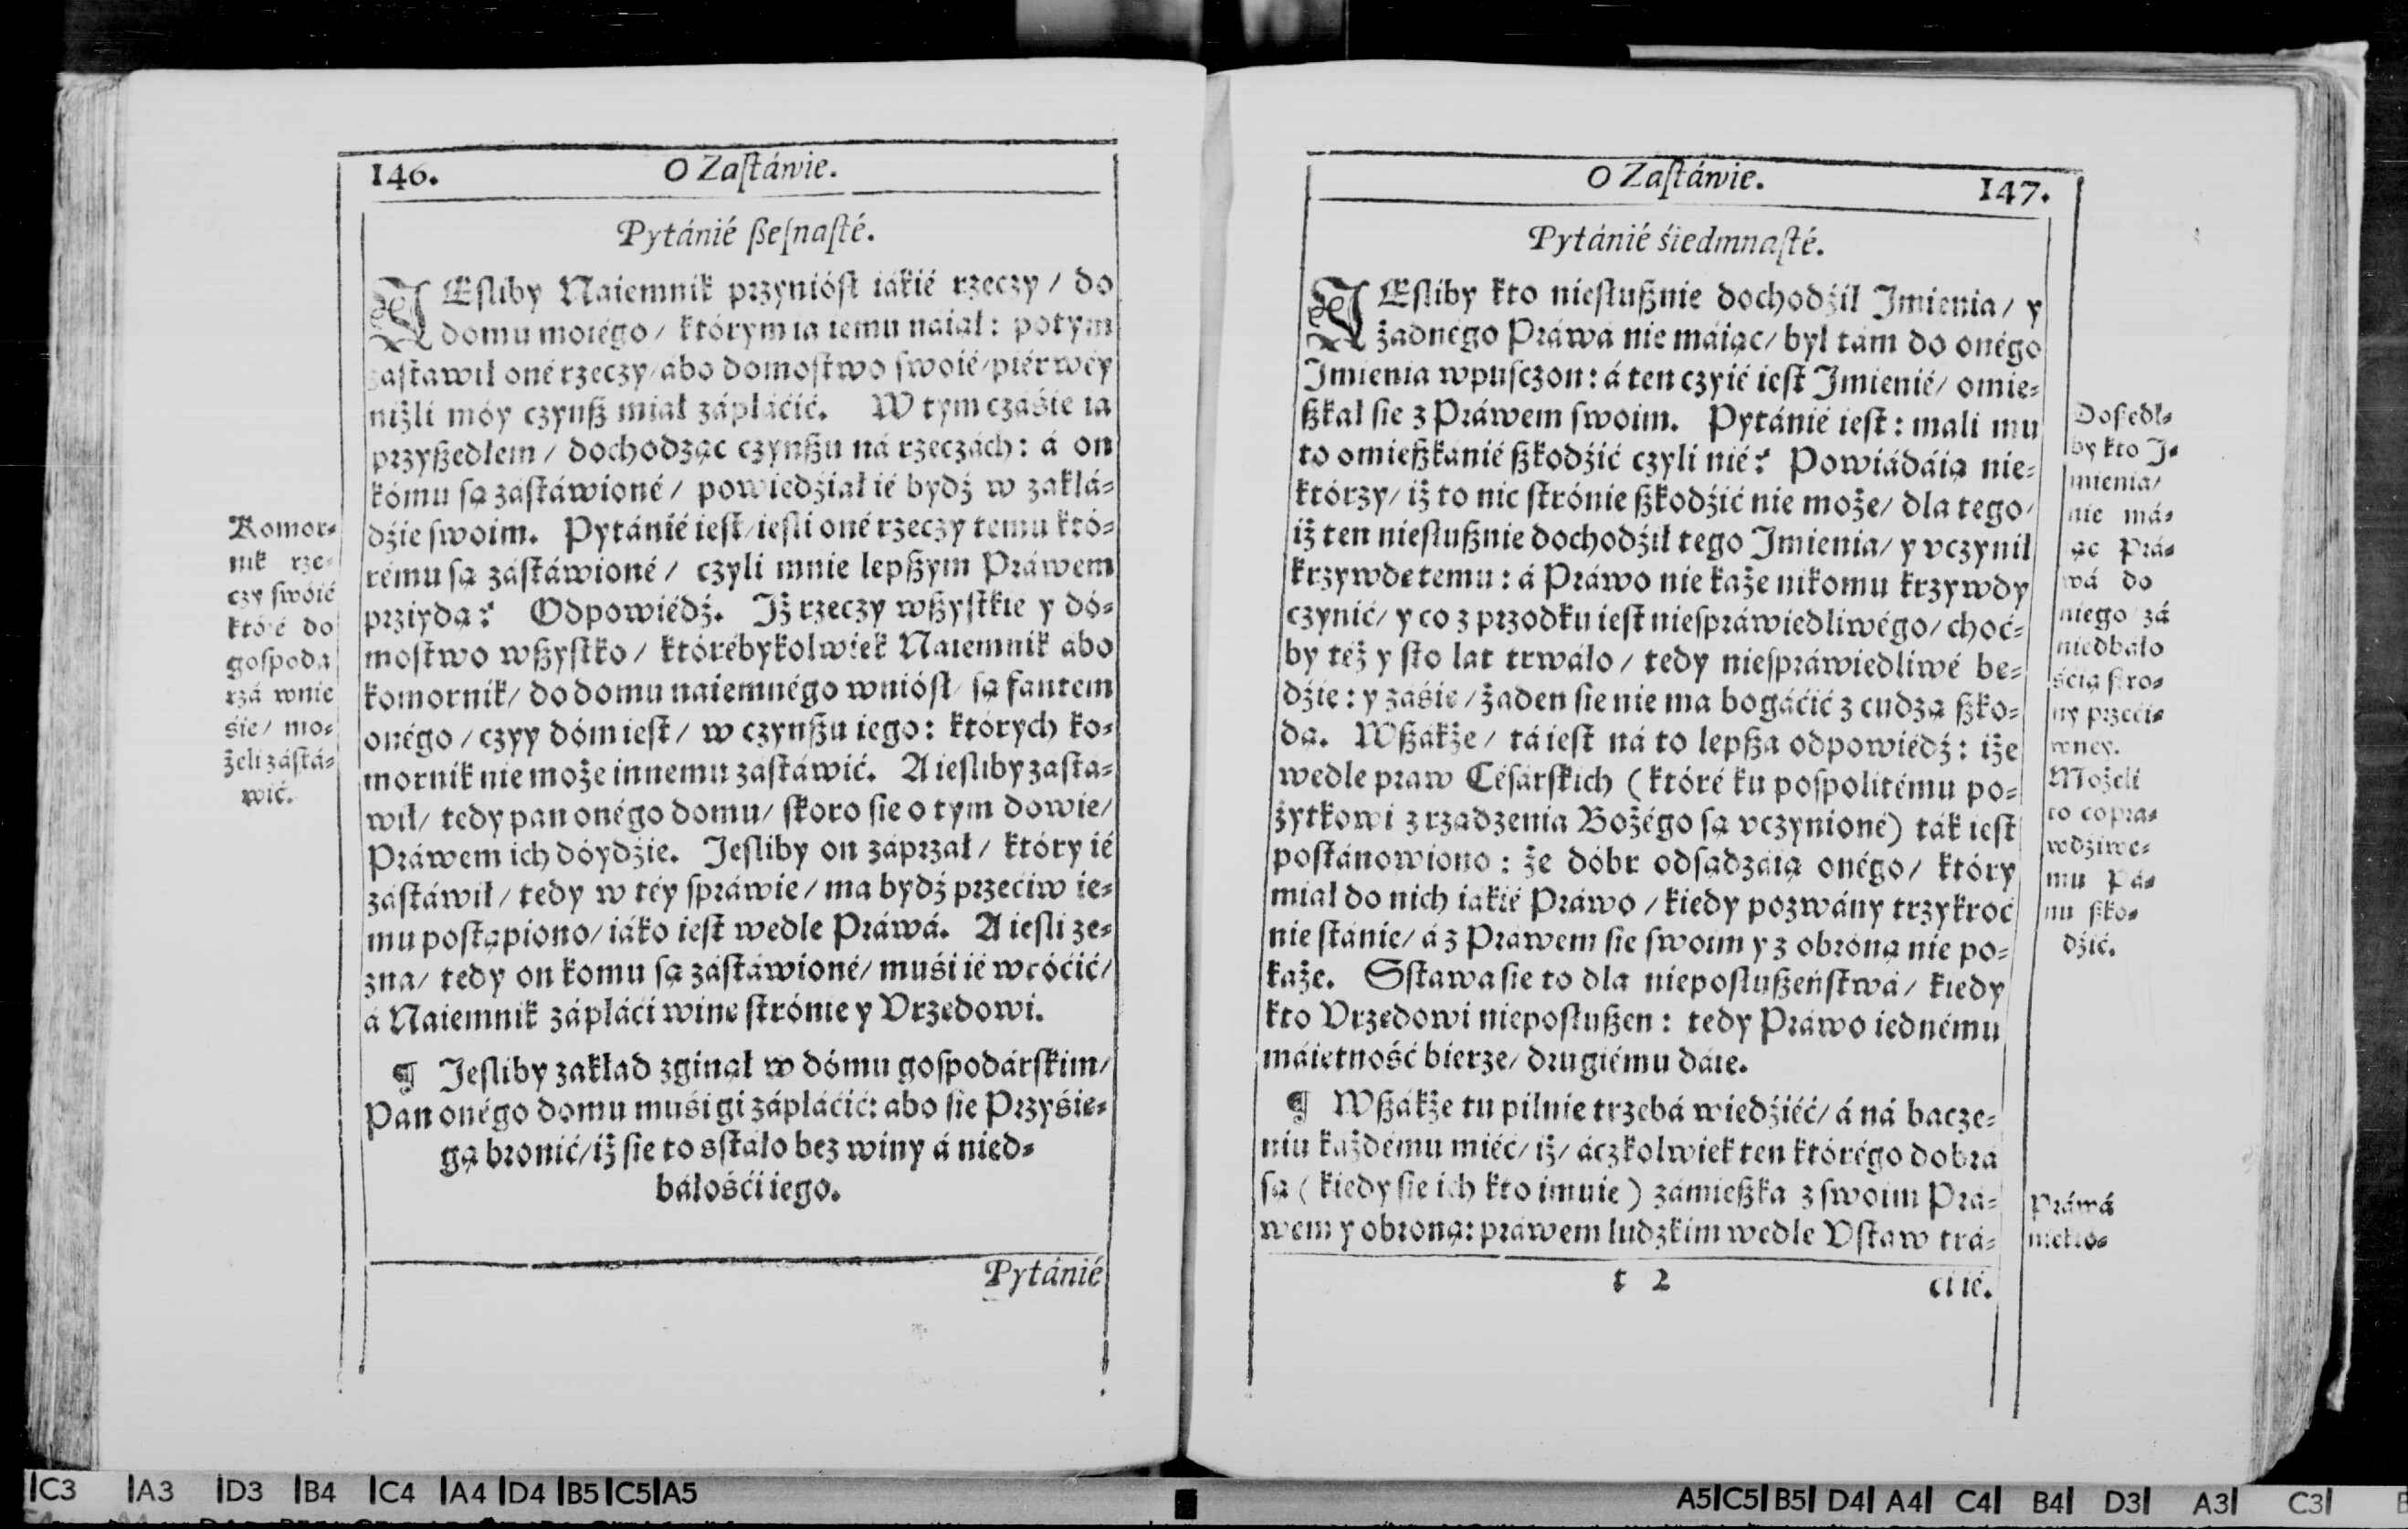 146.
O Zaſtáwie.
Pytánié ßeſnaſté.
JEſliby Naiemnik przynióſł iákié rzeczy / do
domu moiégo / którym ia iemu naiął: potym
zaſtawił oné rzeczy / ábo domoſtwo ſwoié / piérwéy
niżli móy czynß miał zápłáćić. W tym czáśie ia
przyßedłem / dochodząc czynßu ná rzeczách: á on
kómu ſą záſtáwioné / powiedźiał ié bydź w zakłá⸗
dźie ſwoim. Pytánié ieſt / ieſli oné rzeczy temu któ⸗
rému ſą záſtáwioné / czyli mnie lepßym Práwem
prziydą? Odpowiédź. Iż rzeczy wßyſtkie y dó⸗
moſtwo wßyſtko / którébykolwiek Naiemnik abo
komornik / do domu naiemnégo wnióſł / ſą fantem
onégo / czyy dóm ieſt / w czynßu iego: których ko⸗
mornik nie może innemu záſtáwić. A ieſliby zaſta⸗
wił / tedy pan onégo domu / ſkoro ſie o tym dowie /
Práwem ich dóydźie. Jeſliby on záprzał / który ié
záſtáwił / tedy w téy ſpráwie / ma bydź przećiw ie⸗
mu poſtąpiono / iáko ieſt wedle Práwá. A ieſli ze⸗
zna / tedy on komu ſą záſtáwioné / muśi ié wróćić /
á Naiemnik zápłáći winę ſtrónie y Vrzędowi.
¶ Jeſliby zakład zginął w dómu goſpodárſkim /
Pan onégo domu muśi gi zápłáćić: abo ſie Przyśię⸗
gą bronić / iż ſie to sſtáło bez winy á nied⸗
báłośći iego.
Pytánié
Komor⸗
nik rze⸗
czy ſwóié
któré do
goſpoda
rzá wnie
śie / mo⸗
żeli záſtá⸗
wić.
O Zaſtáwie.
147.
Pytánié śiedmnaſté.
JEſliby kto nieſłußnie dochodźił Jmienia / y
żadnégo Práwá nie máiąc / był tám do onégo
Jmienia wpuſczon: á ten czyié ieſt Jmienié / omie⸗
ßkał ſie z Práwem ſwoim. Pytánié ieſt: mali mu
to omießkánié ßkodźić czyli nié? Powiádáią nie⸗
którzy / iż to nic ſtrónie ßkodźić nie może / dla tego /
iż ten nieſłußnie dochodźił tego Jmienia / y vczynił
krzywdę temu: á Práwo nie każe nikomu krzywdy
czynić / y co z przodku ieſt nieſpráwiedliwégo / choć⸗
by téż y ſto lat trwáło / tedy nieſpráwiedliwé bę⸗
dźie: y záśie / żaden ſie nie ma bogáćić z cudzą ßko⸗
dą. Wßákże / tá ieſt ná to lepßa odpowiédź: iże
wedle praw Céſárſkich (któré ku poſpolitému po⸗
żytkowi z rządzenia Bożégo ſą vczynioné) ták ieſt
poſtánowiono: że dóbr odſądzáią onégo / który
miał do nich iákié Práwo / kiedy pozwány trzykroć
nie ſtánie / á z Práwem ſie ſwoim y z obróną nie po⸗
każe. Sſtawa ſie to dla niepoſłußeńſtwá / kiedy
kto Vrzędowi niepoſłußen: tedy Práwo iednému
máiętność bierze / drugiému dáie.
¶ Wßákże tu pilnie trzebá wiedźiéć / á ná bacze⸗
niu każdému miéć / iż / áczkolwiek ten którégo dobrá
ſą ( kiedy ſie ich kto imuie ) zámießka z ſwoim Prá⸗
wem y obroną: práwem ludzkim wedle Vſtaw trá⸗
t 2
ći ié.
Doſiedł⸗
by kto J⸗
mienia /
nie má⸗
ąc Prá⸗
wá do
niego zá
niedbáło
śćią ſtro⸗
ny przeći⸗
wney.
Możeli
to copra⸗
wdźiwe⸗
mu Pá⸗
nu ßko⸗
dźić.
Práwá
niektó⸗
|C3 |A3 |D3 |B4 |C4 |A4 |D4 |B5 |C5 |A5
A5| C5| B5| D4| A4| C4| B4| D3| A3| C3|